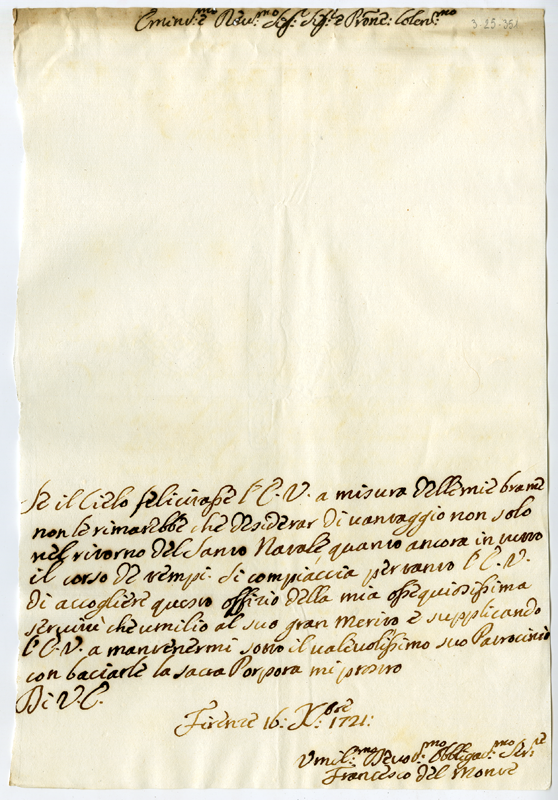 Eminen.mo Rev.mo Sig.r Sig.r e Prōne Colen.mo
3-25-351
Se il Cielo felicitasse l'E.V. a misura delle mie brame
non le rimarebbe che desiderar di vantaggio non solo
nel ritorno del Santo Natale, quanto ancora in tutto
il corso de tempi. Si compiaccia per tanto l'E.V.
di accogliere questo offizio della mia ossequiosissima
servitù che umilio al suo gran merito e supplicando
l'E.V. a mantenermi sotto il valevolissimo suo Patrocinio
con baciarle la sacra Porpora mi protto
Di V.E.
Firenze 16: X.bre 1721:
Umil.mo Devot.mo Obbligat.mo Ser.re
Francesco del Monte